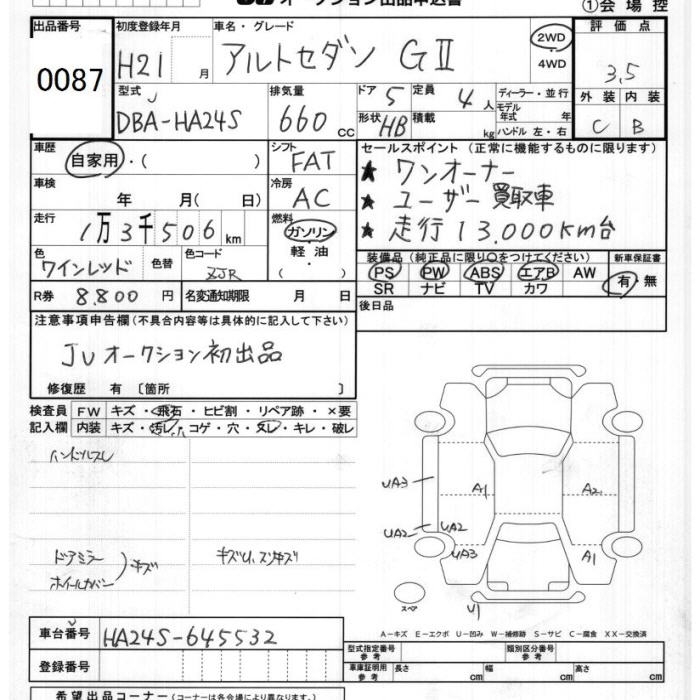 オークション出品申込書 ①会場控
出品番号 初度登録年月 車名・グレード 評価点
0087 H21 月 アルトセダン GⅡ 2WD・4WD 3.5
型式 排気量 ドア 5 定員 4人 ディーラー・並行 外装 内装
DBA-HA24S 660 CC 形状 HB 積載 kg モデル年式 年 ハンドル 左・右 C B
車歴 シフト セールスポイント(正常に機能するものに限ります)
自家用・( ) FAT ★ ワンオーナー
車検 冷房 ★ ユーザー買取車
年 月( 日) AC ★ 走行13.000Km台
走行 燃料
1万3千506km ガソリン・軽油・( )
色 色替 色コード 装備品(純正品に限り○をつけてください) 新車保証書
ワインレッド ZJR PS PW ABS エアB AW 有・無
SR ナビ TV カワ
R券 8.800円 名変通知期限 月 日 後日品
注意事項申告欄(不具合内容等は具体的に記入して下さい)
JUオークション初出品
修復歴 有〔箇所 〕
検査員 FW キズ・飛石・ヒビ割・リペア跡・×要
記入欄 内装 キズ・汚レ・コゲ・穴・スレ・キレ・破レ
ハンドルスレ
UA3 A1 A2
UA2 UA2
UA3 A1
ドアミラー
ホイールカバー
キズ
スペア U1
A−キズ E−エクボ U−凹み W−補修跡 S−サビ C−腐食 XX−交換済
車台番号 HA24S-645532
型式指定番号参考 類別区分番号参考
登録番号 車庫証明用参考 長さ cm 幅 cm 高さ cm
希望出品コーナー(コーナーは各会場により異なります)